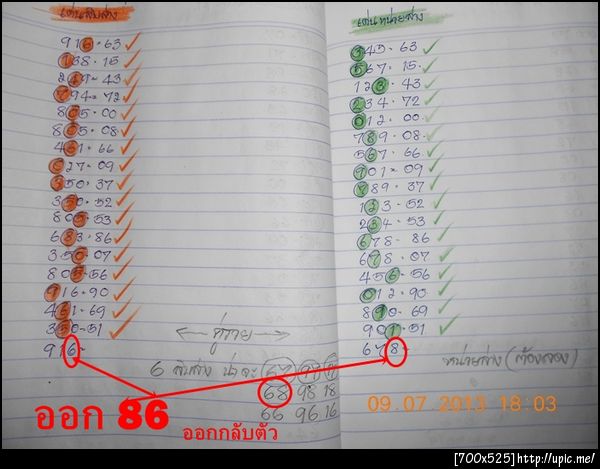 เด่นสิบล่าง
916-63
138-15
269-43
794-72
805-00
805-08
461-66
627-09
350-37
350-52
805-53
683-86
350-07
805-56
916-90
461-69
350-51
916-
เด่นหน่วยล่าง
345-63
567-15
123-43
234-72
012-00
789-08
567-66
901-09
789-37
123-52
234-53
678-86
678-07
456-56
012-90
890-69
901-51
678-
6 สิบล่าง น่าจะ
68 98 18
66 96 16
หน่วยล่าง (ต้องลอง)
ออก 86
ออกกลับตัว
09.07.2013 18:03
[700x525]http://upic.me/